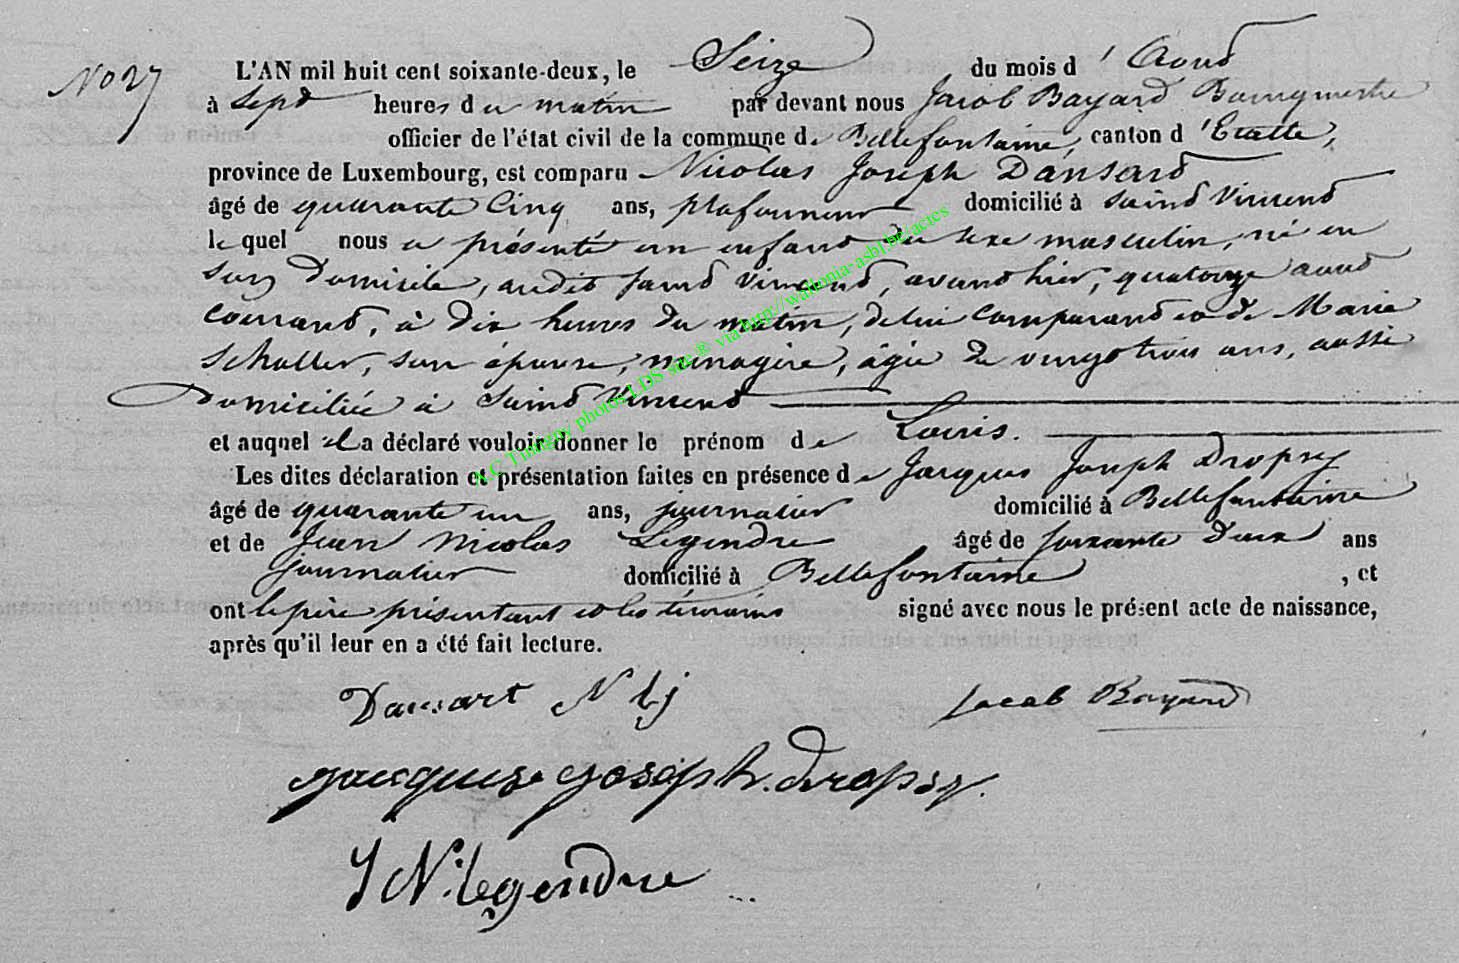 No 27
L'AN mil huit cent soixante-deux, le Seize du mois d'Aout
à Sept heures du matin par devant nous Jacob Bayard Bourgmestre
officier de l'état civil de la commune de Bellefontaine, canton d'Etalle,
province de Luxembourg, est comparu Nicolas Joseph Dansard
âgé de quarante Cinq ans, plafonneur domicilié à Saint Vincent
lequel nous a présenté un enfant du sexe masculin, né en
son Domicile, audit Saint Vincent, avant hier, quatorze aout
courant, à dix heures du matin, de lui comparant et de Marie
Scholler, son épouse, ménagère, âgée de vingt trois ans, aussi
Domiciliée à Saint Vincent
et auquel il a déclaré vouloir donner le prénom de Louis.
Les dites déclaration et présentation faites en présence de Jacques Joseph Dropsy
âgé de quarante un ans, journalier domicilié à Bellefontaine
et de Jean Nicolas Legendre âgé de soixante Deux ans
journalier domicilié à Bellefontaine, et
ont le père présentant et les témoins signé avec nous le présent acte de naissance,
après qu'il leur en a été fait lecture.
Dansart N J Jacob Bayard
Jacques Joseph. dropsy.
J N. Legendre
A.C Tintigny photos LDS site ® via http://wallonia-asbl.be/actes